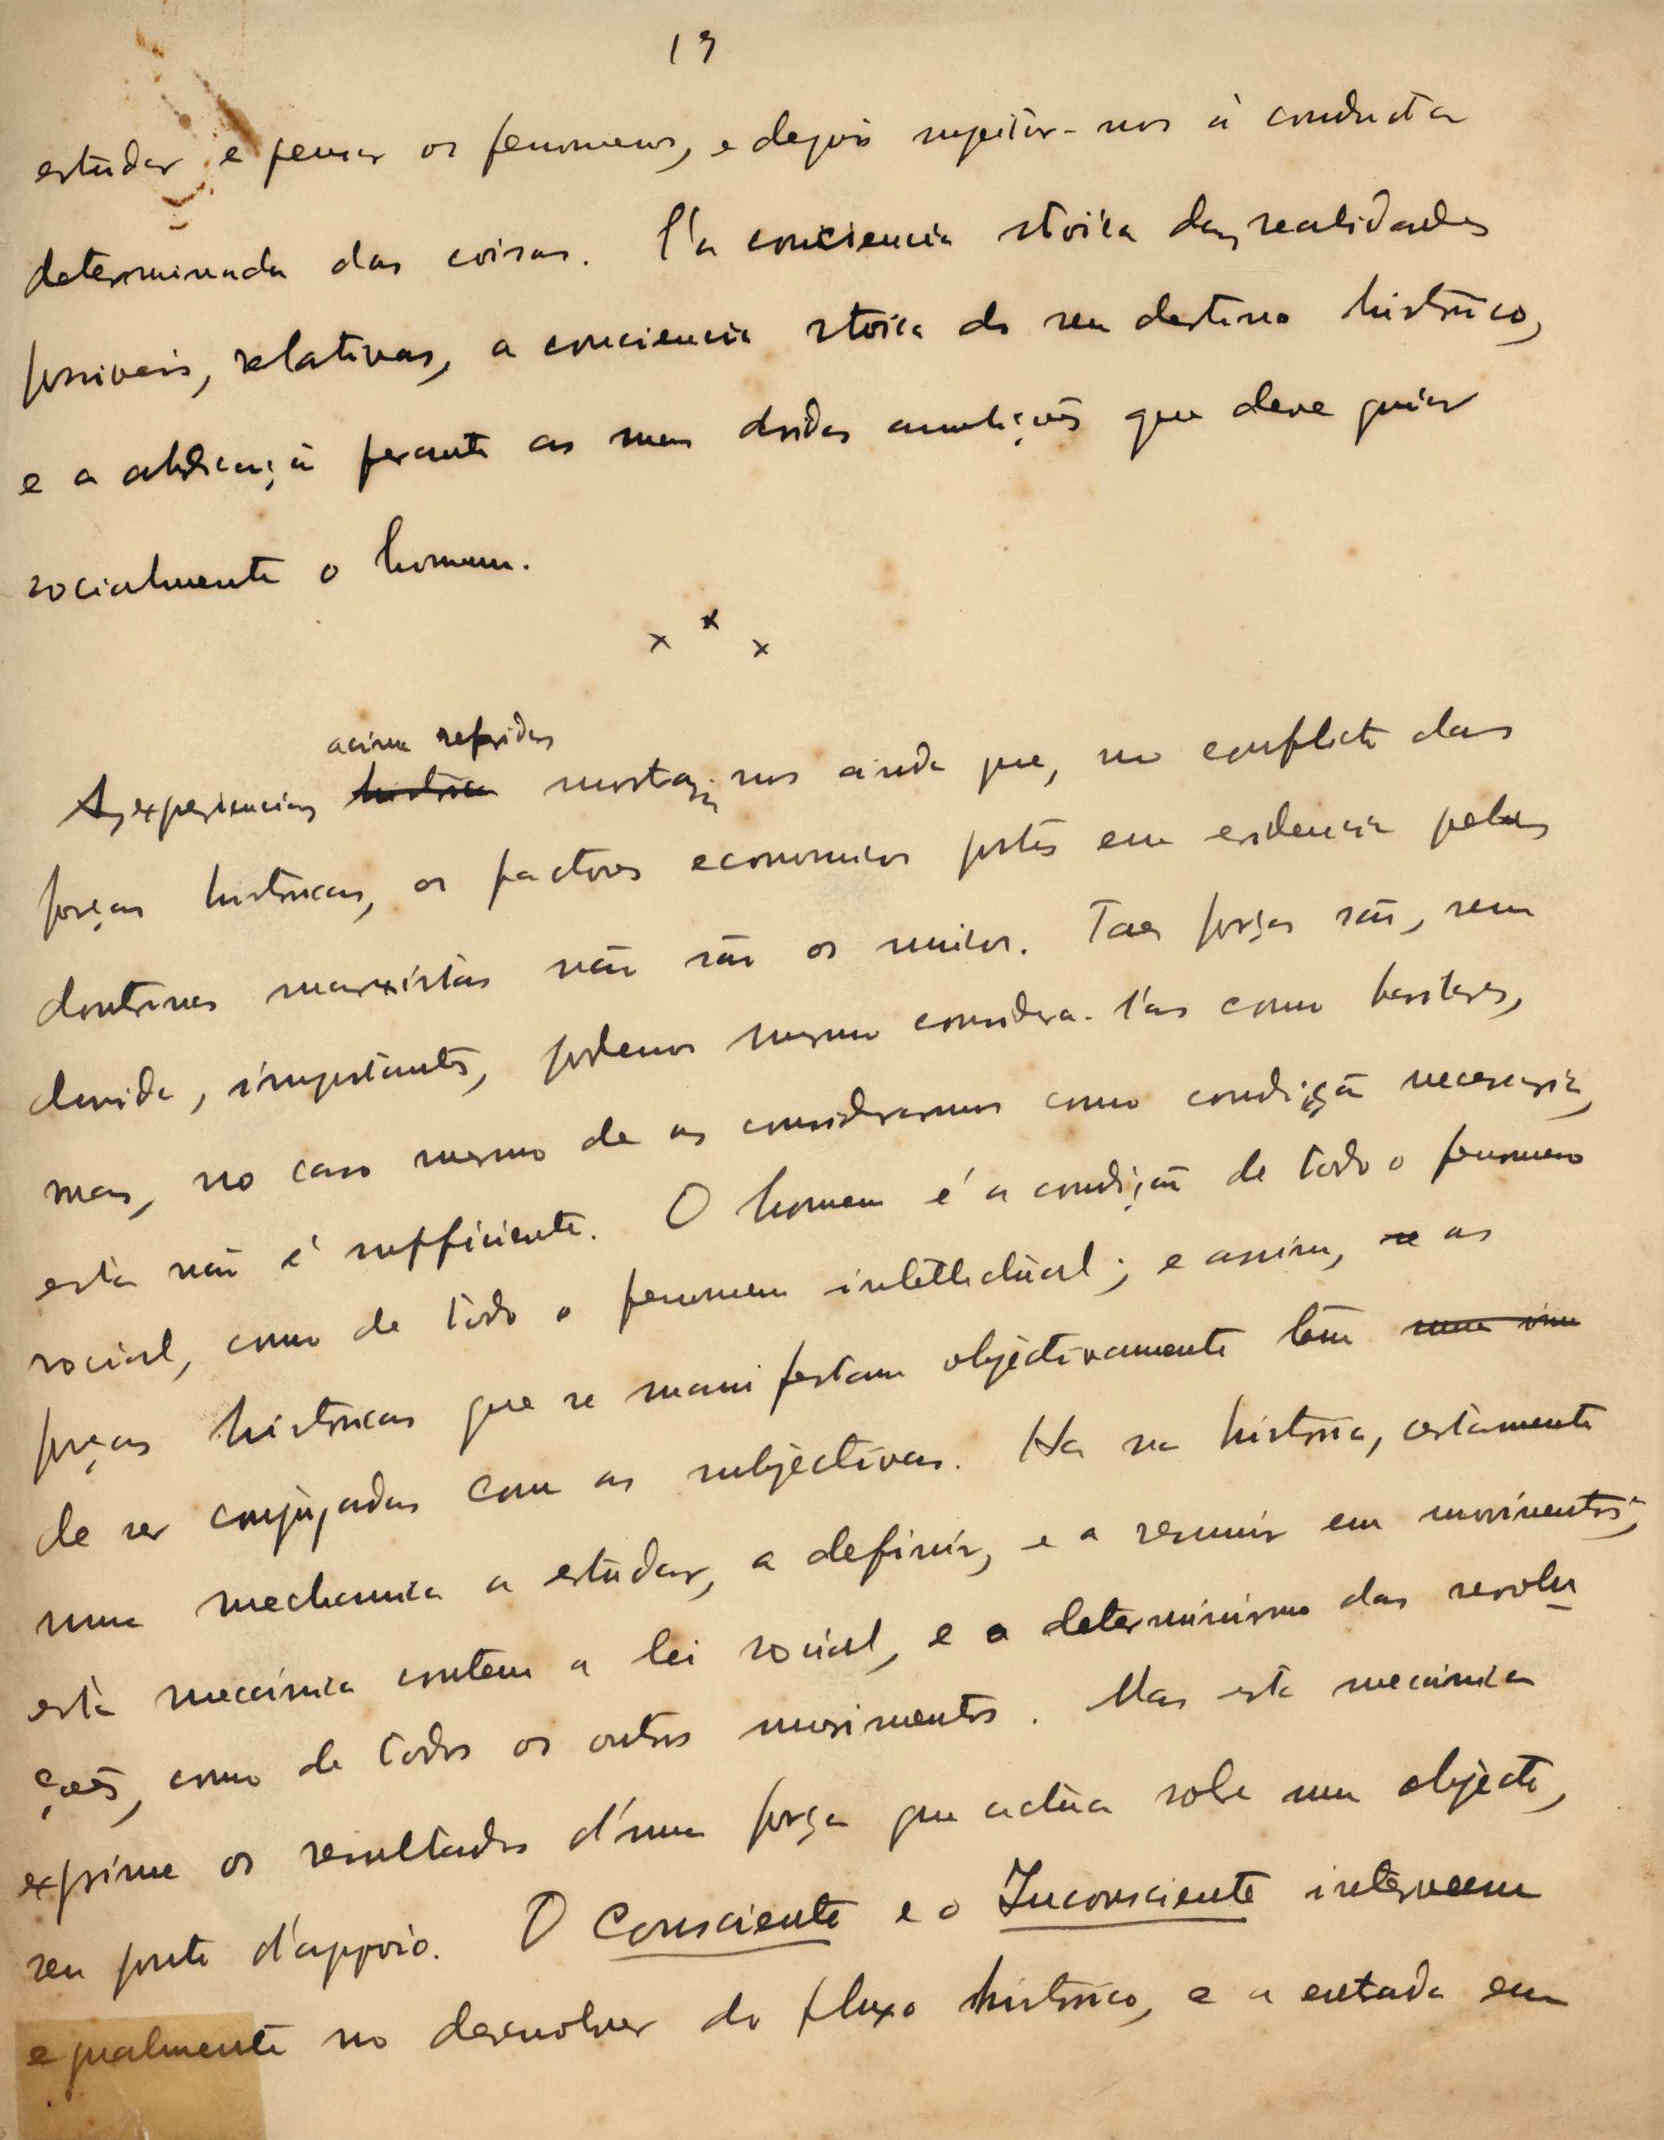 19
estudar e pensar os fenomenos, e depois sujeitar-nos á conducta
determinada das coisas. É a consciencia stoica das realidades
possiveis, relativas, a consciencia stoica do seu destino historico,
e a abdicação perante as suas doidas ambições que deve guiar
socialmente o homem.
x x x
acima referidas
As experiencias historica mostram-nos ainda que, no conflicto das
forças historicas, os factores economicos postos em evidencia pelas
doutrinas marxistas não são os unicos. Taes forças são, sem
duvida, importantes, podemos mesmo considera-las como basilares,
mas, no caso mesmo de as considerarmos como condição necessaria,
esta não é sufficiente. O homem é a condição de todo o fenomeno
social, como de todo o fenomeno intellectual; e assim, se as
forças historicas que se manifestam objectivamente têm
de ser conjugadas com as subjectivas. Ha na historia, certamente
uma mechanica a estudar, a definir, e a resumir em movimentos;
esta mecánica contem a lei social, e o determinismo das revolu
ções, como de todos os outros movimentos. Mas esta mecánica
exprime os resultados d'uma força que actúa sobre um objecto,
seu ponto d'appoio. O Consciente e o Inconsciente interveem
egualmente no desenvolver do fluxo historico, e a entrada em